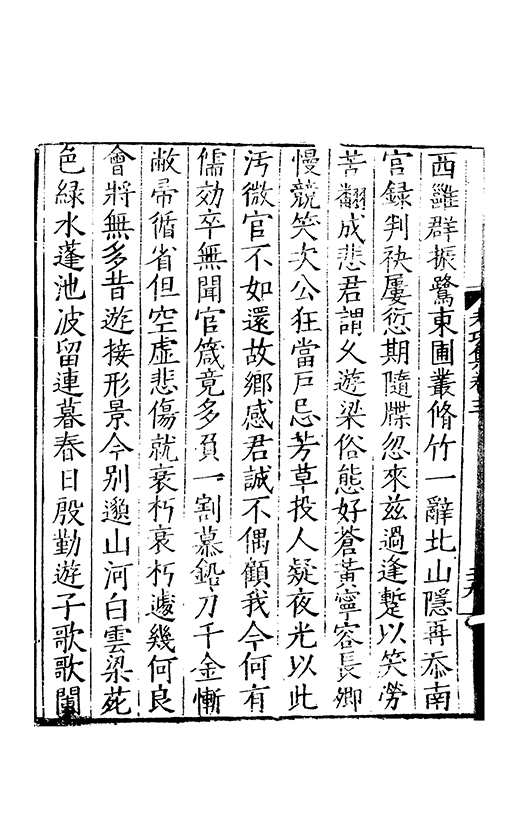 西雝群振鷺東圃叢脩竹一辭北山隱再忝南
宫録判袂屢愆期隨牒忽來兹過逢蹔以笑勞
苦翻成悲君謂久遊梁俗態好蒼黃寧容長卿
慢競笑次公狂當戸忌芳草投人疑夜光以此
汚微官不如還故鄉感君誠不偶顧我今何有
儒効卒無聞官箴竟多負一割慕鉛刀千金慚
敝帚循省但空虚悲傷就衰朽衰朽遽幾何良
會將無多昔遊接形景今别邈山河白雲梁苑
色綠水蓬池波留連暮春日殷勤遊子歌歌闌